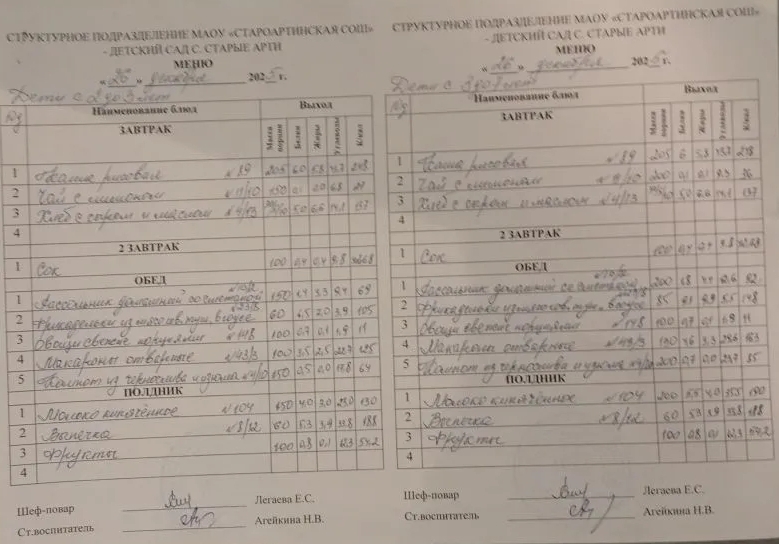 СТРУКТУРНОЕ ПОДРАЗДЕЛЕНИЕ МАОУ «СТАРОАРТИНСКАЯ СОШ»
- ДЕТСКИЙ САД С. СТАРЫЕ АРТИ
МЕНЮ
«26» декабря 2025 г.
Дети с 2 до 3 лет
Наименование блюд Выход
ЗАВТРАК Масса порции Белки Жиры Углеводы Ккал
1 Каша рисовая №89 205 6,0 5,8
2 Чай с лимоном 150 0,1
3 Хлеб с сыром и маслом №4/13 5,0 6,6 14,1 137
4
2 ЗАВТРАК
1 Сок 100 0,4 0,4 9,8
ОБЕД
1 Рассольник домашний со сметаной 150 1,4 3,3 9,4 69
2 Фрикадельки из мяса гов. туш. в соусе 60 4,5 2,0 3,9 105
3 Овощи свежие порциями №148 100 0,7 0,1 1,9 11
4 Макароны отварные №43/3 100 3,5 2,5 125
5 Компот из чернослива и изюма №4/10 150 0,5 0,0 64
ПОЛДНИК
1 Молоко кипячёное №104 150 4,0 130
2 Выпечка №8/12 60 5,3 3,9 33,8 188
3 Фрукты 100 0,8 0,1 54,2
4
Шеф-повар Легаева Е.С.
Ст.воспитатель Агейкина Н.В.
СТРУКТУРНОЕ ПОДРАЗДЕЛЕНИЕ МАОУ «СТАРОАРТИНСКАЯ СОШ»
- ДЕТСКИЙ САД С. СТАРЫЕ АРТИ
МЕНЮ
«26» декабря 2025 г.
Дети с 3 до 7 лет
Наименование блюд Выход
ЗАВТРАК Масса порции Белки Жиры Углеводы Ккал
1 Каша рисовая №89 205 6 5,8
2 Чай с лимоном 200 0,1 0,1 9,3 36
3 Хлеб с сыром и маслом №4/13 5,0 6,6 14,1 137
4
2 ЗАВТРАК
1 Сок 100 0,4 0,4 9,8
ОБЕД
1 Рассольник домашний со сметаной 200 1,8 4,4 12,6 92
2 Фрикадельки из мяса гов. туш. в соусе 85 5,5 148
3 Овощи свежие порциями №148 100 0,7 0,1 1,9 11
4 Макароны отварные №43/3 150 4,6 3,3 163
5 Компот из чернослива и изюма №4/10 200 0,7 0,0 23,7 85
ПОЛДНИК
1 Молоко кипячёное №104 200 5,5 190
2 Выпечка №8/12 60 5,3 3,9 33,8 188
3 Фрукты 100 0,8 0,1 54,2
4
Шеф-повар Легаева Е.С.
Ст.воспитатель Агейкина Н.В.